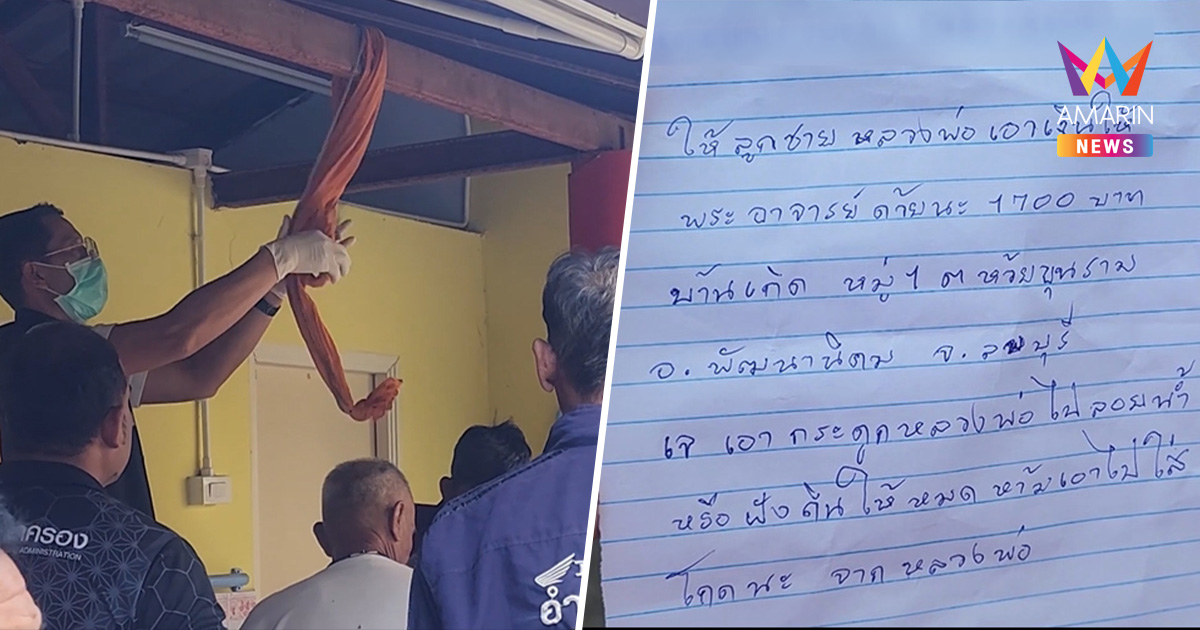 AMARIN
NEWS
ให้ลูกชาย หลวงพ่อ เอาเงินให้
พระอาจารย์ด้วยนะ 1700 บาท
บ้านเกิด หมู่ 1 ต ห้วยขุนราม
อ. พัฒนานิคม จ. ลพบุรี
เจ เอา กระดูกหลวงพ่อไปลอยน้ำ
หรือ ฝังดินให้หมด ห้ามเอาไปใส่
โกดนะ จากหลวงพ่อ
ครอง
ADMINISTRATION